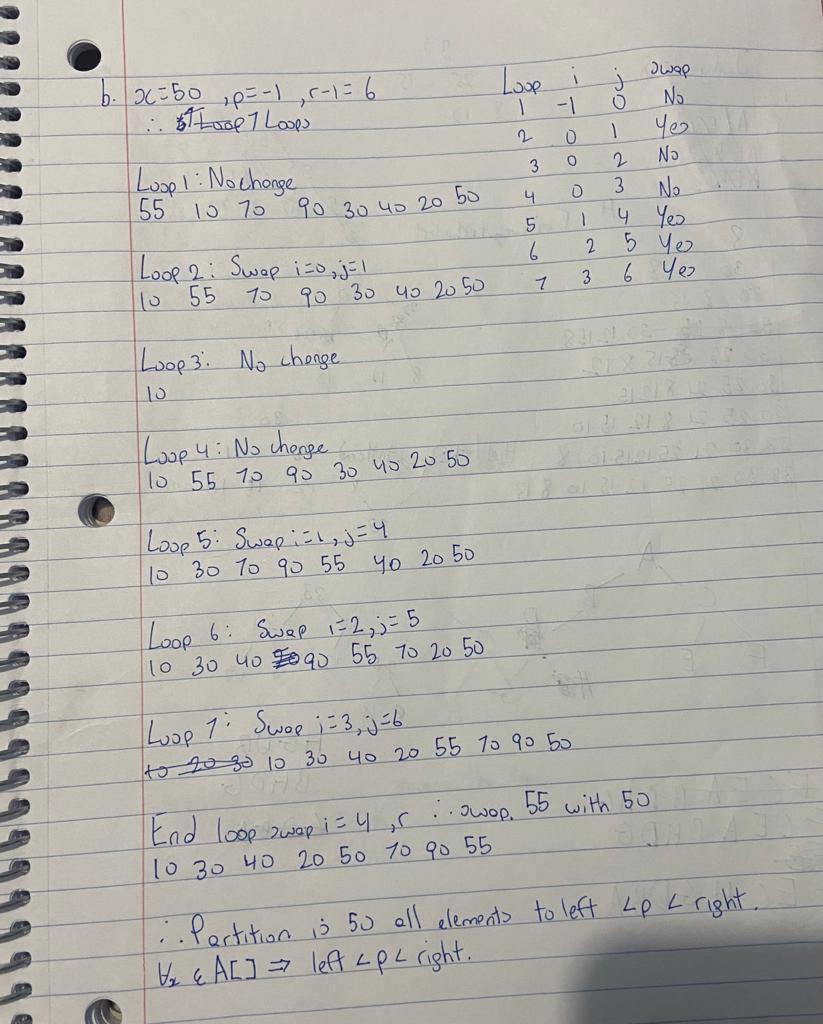 b. x=50 , p=-1 , r-1=6
∴ 7 Loops
Loop i j swap
1 -1 0 No
2 0 1 Yes
3 0 2 No
4 0 3 No
5 1 4 Yes
6 2 5 Yes
7 3 6 Yes
Loop 1: No change
55 10 70 90 30 40 20 50
Loop 2: Swap i=0, j=1
10 55 70 90 30 40 20 50
Loop 3: No change
10
Loop 4: No change
10 55 70 90 30 40 20 50
Loop 5: Swap i=1, j=4
10 30 70 90 55 40 20 50
Loop 6: Swap i=2, j=5
10 30 40 90 55 70 20 50
Loop 7: Swap i=3, j=6
10 20 30 10 30 40 20 55 70 90 50
End loop swap i=4 , r ∴ swap. 55 with 50
10 30 40 20 50 70 90 55
∴ Partition is 50 all elements to left <p < right.
∀x ε A[] ⇒ left <p< right.